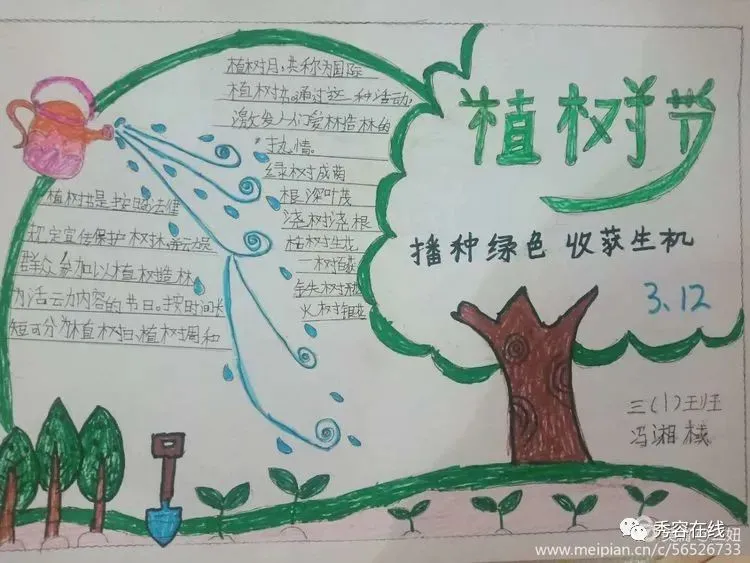 植树节
播种绿色 收获生机
3.12
三(1)班
冯湘
植树月,共称为国际
植树节。通过这一种活动,
激发人们爱林造林的
热情。
绿树成菌
根深叶茂
浇树浇根
枯树生花
一树百获
火树银花
植树节是按照法律
规定宣传保护树木,
群众参加以植树造林
为活动内容的节日。按时间长
短可分为植树日、植树周和
秀容在线
www.meipian.cn/c/56526733